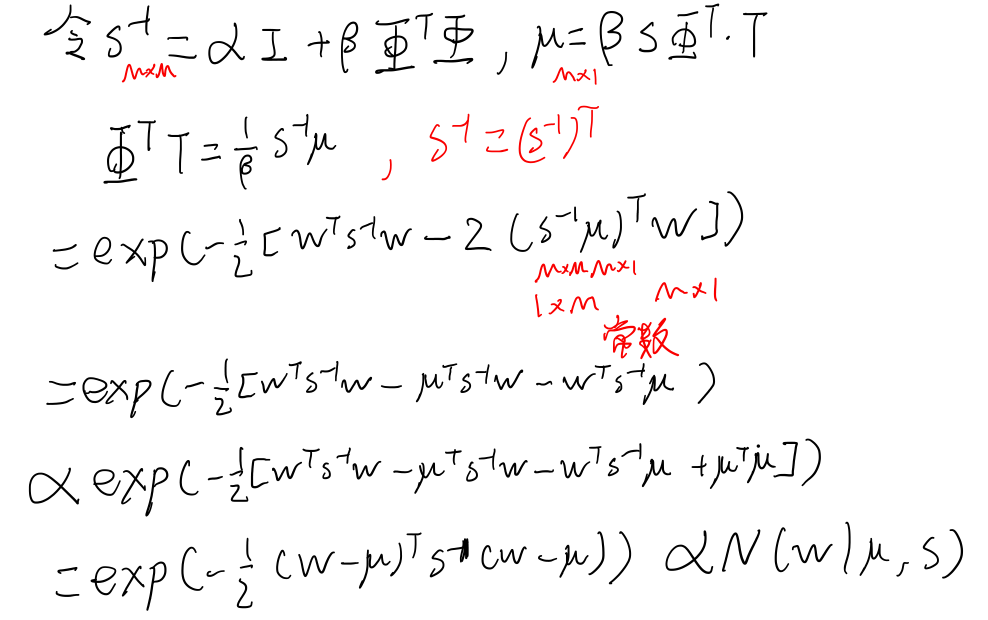 令 S⁻¹ = αI + βΦᵀΦ , μ = βSΦᵀ·T
M×M M×1
Φᵀ T = 1/β S⁻¹μ , S⁻¹ = (S⁻¹)ᵀ
= exp(-1/2 [wᵀS⁻¹w - 2 (S⁻¹μ)ᵀ w])
M×M M×1
1×M M×1
常数
= exp(-1/2 [wᵀS⁻¹w - μᵀS⁻¹w - wᵀS⁻¹μ )
∝ exp(-1/2 [wᵀS⁻¹w - μᵀS⁻¹w - wᵀS⁻¹μ + μᵀμ])
= exp(-1/2 (w-μ)ᵀ S⁻¹ (w-μ)) ∝ N(w|μ, S)